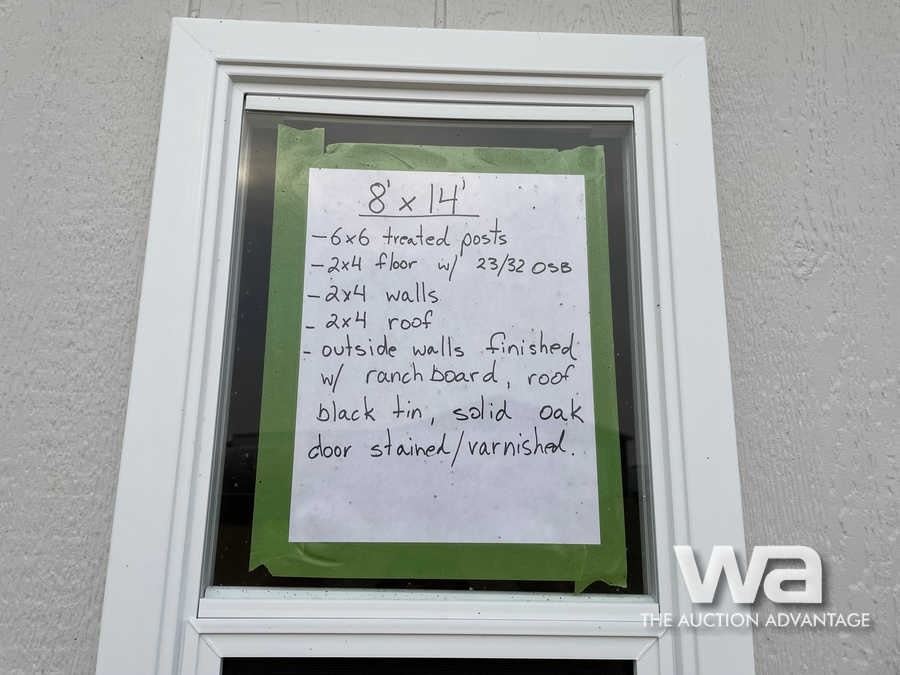 8' x 14'
- 6x6 treated posts
- 2x4 floor w/ 23/32 OSB
- 2x4 walls
- 2x4 roof
- outside walls finished
w/ ranchboard, roof
black tin, solid oak
door stained/varnished.
wa
THE AUCTION ADVANTAGE